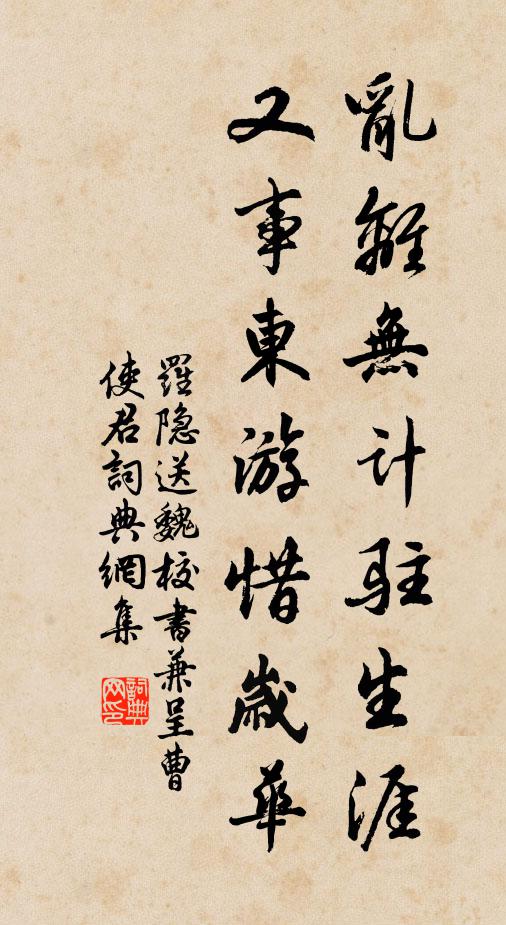 亂離無計駐生涯
又事東游惜歲華
羅隐送魏校書兼呈曹
使君詞典網集
詞典網印